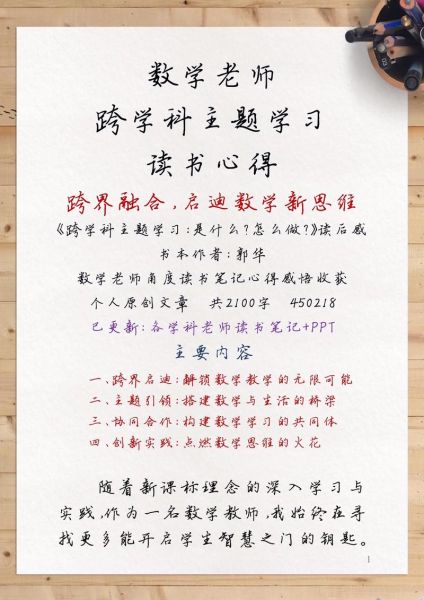 数学老师
跨学科主题学习
读书心得
跨界融合,启迪数学新思维
《跨学科主题学习:是什么?怎么做?》读后感
书本作者:郭华
数学老师角度读书笔记心得感悟收获
个人原创文章 共2100字 450218
已更新:各学科老师读书笔记+PPT
主要内容
一、跨界启迪:解锁数学教学的无限可能
二、主题引领:搭建数学与生活的桥梁
三、协同合作:构建数学学习的共同体
四、创新实践:点燃数学思维的火花
随着新课标理念的深入学习与
实践,作为一名数学教师,我始终在寻
找更多能开启学生智慧之门的钥匙。
1